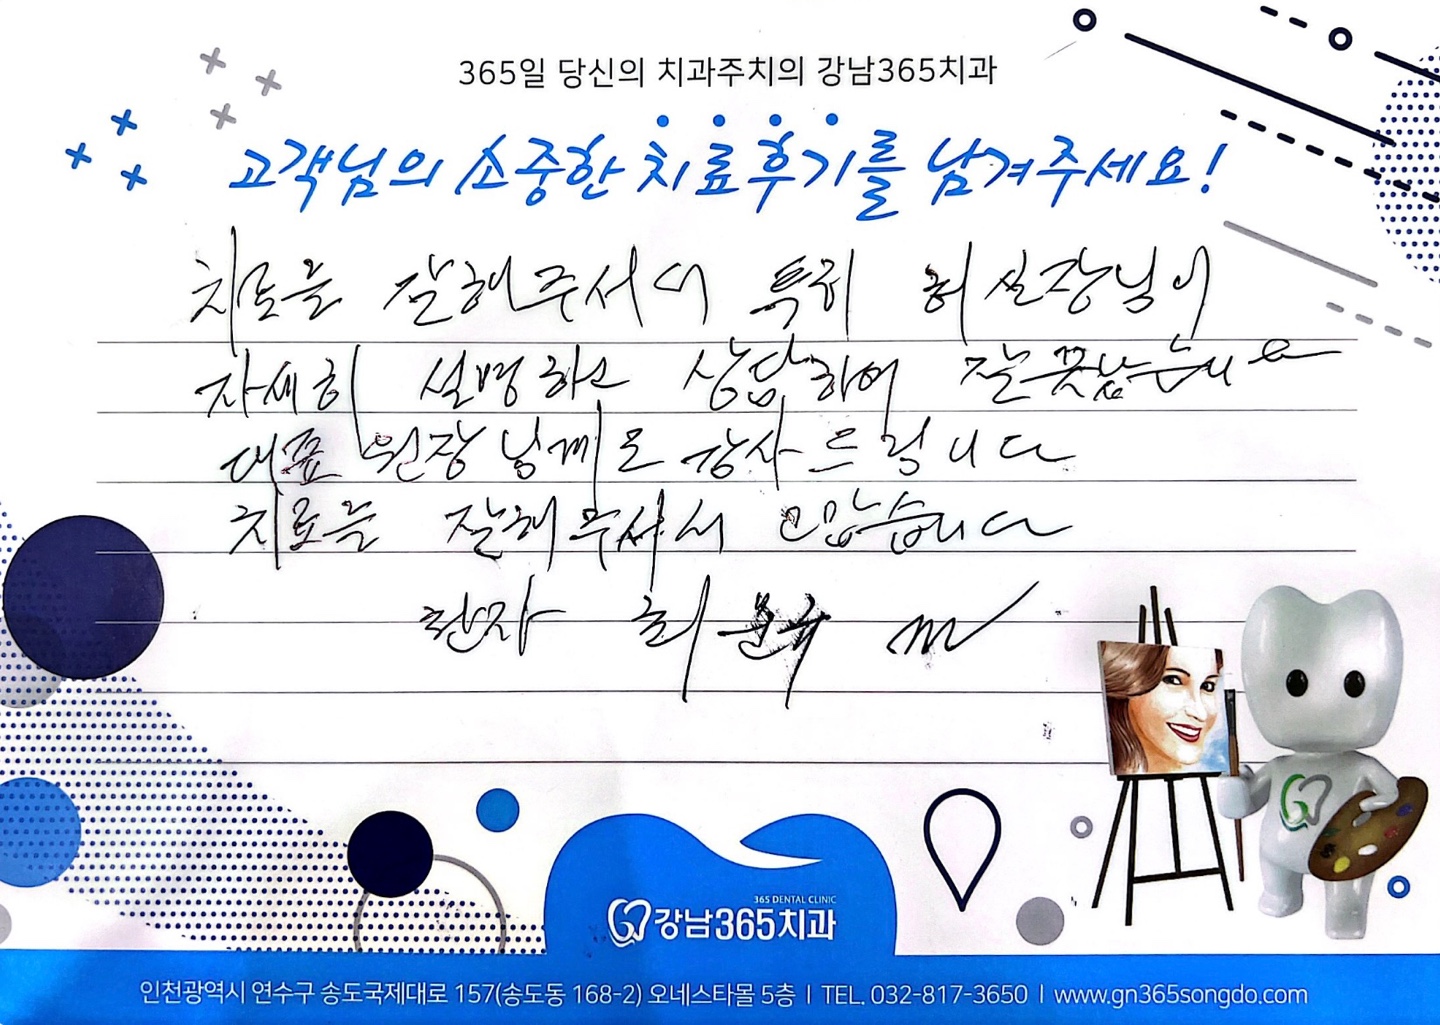 365일 당신의 치과주치의 강남365치과
고객님의 소중한 치료후기를 남겨주세요!
치료를 잘해주서서 특히 허실장님이
자세히 설명하고 상담하여 잘
대표 원장님께도 감사드립니다
치료를 잘해주셔서 고맙습니다
환자 최
365 DENTAL CLINIC
강남365치과
인천광역시 연수구 송도국제대로 157(송도동 168-2) 오네스타몰 5층 | TEL. 032-817-3650 | www.gn365songdo.com